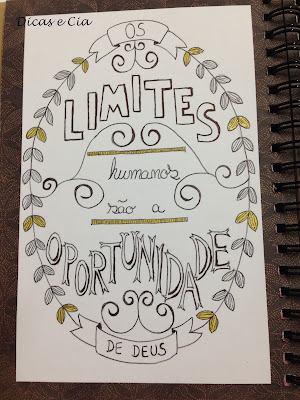 Dicas e Cia
OS
LIMITES
humanos
são a
OPORTUNIDADE
DE DEUS